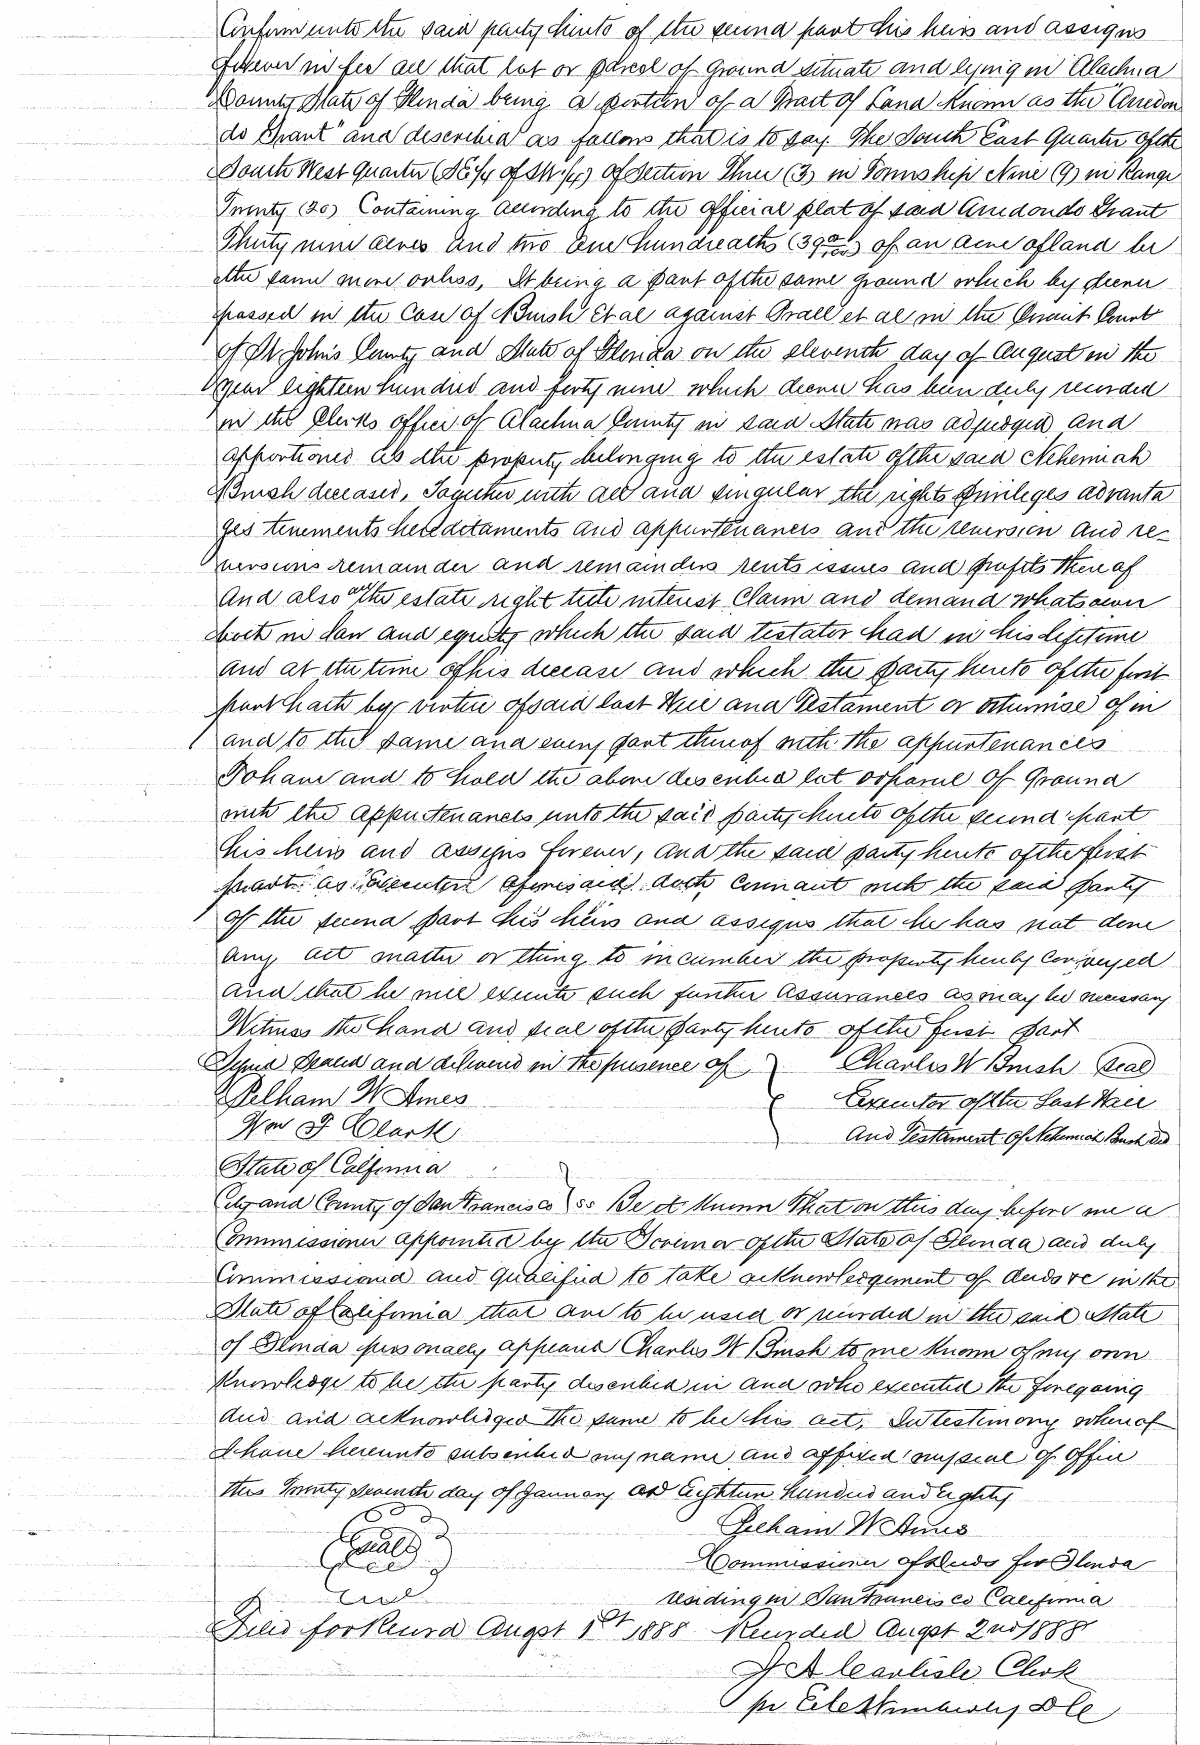 Confirm unto the said party hereto of the second part his heirs and assigns
forever in fee all that lot or parcel of ground situate and lying in Alachua
County State of Florida being a portion of a Tract of Land Known as the "Arredon
do Grant" and described as follows that is to say. The South East Quarter of the
South West quarter (SE¼ of SW¼) of Section Three (3) in Township Nine (9) in Range
Twenty (20) Containing according to the official plat of said Arredondo Grant
Thirty nine acres and two one hundreadths (39 2/100) of an acre of land be
the same more or less, It being a part of the same ground which by decree
passed in the Case of Brush Et al against Prall et al in the Circuit Court
of St Johns County and State of Florida on the eleventh day of August in the
year eighteen hundred and forty nine which decree has been duly recorded
in the Clerks office of Alachua County in said State was adjudged and
apportioned as the property belonging to the estate of the said Nehemiah
Brush deceased, Together with all and singular the rights privileges advanta
ges tenements hereditaments and appurtenances and the reversion and re-
versions remainder and remainders rents issues and profits thereof
And also all the estate right title interest Claim and demand whatsoever
both in law and equity which the said testator had in his lifetime
and at the time of his decease and which the party hereto of the first
part hath by virtue of said last Will and Testament or otherwise of in
and to the same and every part thereof with the appurtenances
To have and to hold the above described lot or parcel of ground
with the appurtenances unto the said party hereto of the second part
his heirs and assigns forever, and the said party hereto of the first
part as Executor aforesaid doth covenant with the said party
of the second part his heirs and assigns that he has not done
any act matter or thing to incumber the property hereby conveyed
and that he will execute such further assurances as may be necessary
Witness the hand and seal of the party hereto of the first part
Signed Sealed and delivered in the presence of Charles W Brush (seal)
Pelham W Ames Executor of the Last Will
Wm F Clark And Testament of Nehemiah Brush Decd
State of California
City and County of San Francisco } ss Be it Known That on this day before me a
Commissioner appointed by the Governor of the State of Florida and duly
Commissioned and qualified to take acknowledgement of deeds &c in the
State of California that are to be used or recorded in the said State
of Florida personally appeared Charles W Brush to me known of my own
Knowledge to be the party described in and who executed the foregoing
deed and acknowledged the same to be his act. In testimony whereof
I have hereunto subscribed my name and affixed my seal of office
this Twenty seventh day of January AD Eighteen hundred and Eighty
Pelham W Ames
(seal) Commissioner of deeds for Florida
residing in San Francisco California
Filed for Record Augst 1st 1888 Recorded Augst 2nd 1888
J A Carlisle Clerk
pr Wimberly D C